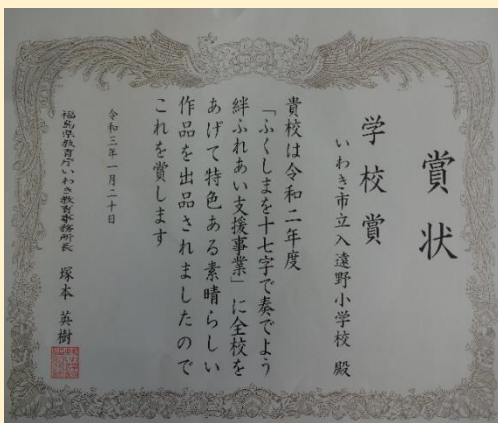 賞状
学校賞
いわき市立入遠野小学校 殿
貴校は令和二年度
「ふくしまを十七字で奏でよう
絆ふれあい支援事業」に全校を
あげて特色ある素晴らしい
作品を出品されましたので
これを賞します
令和三年一月二十日
福島県教育庁いわき教育事務所長 塚本英樹